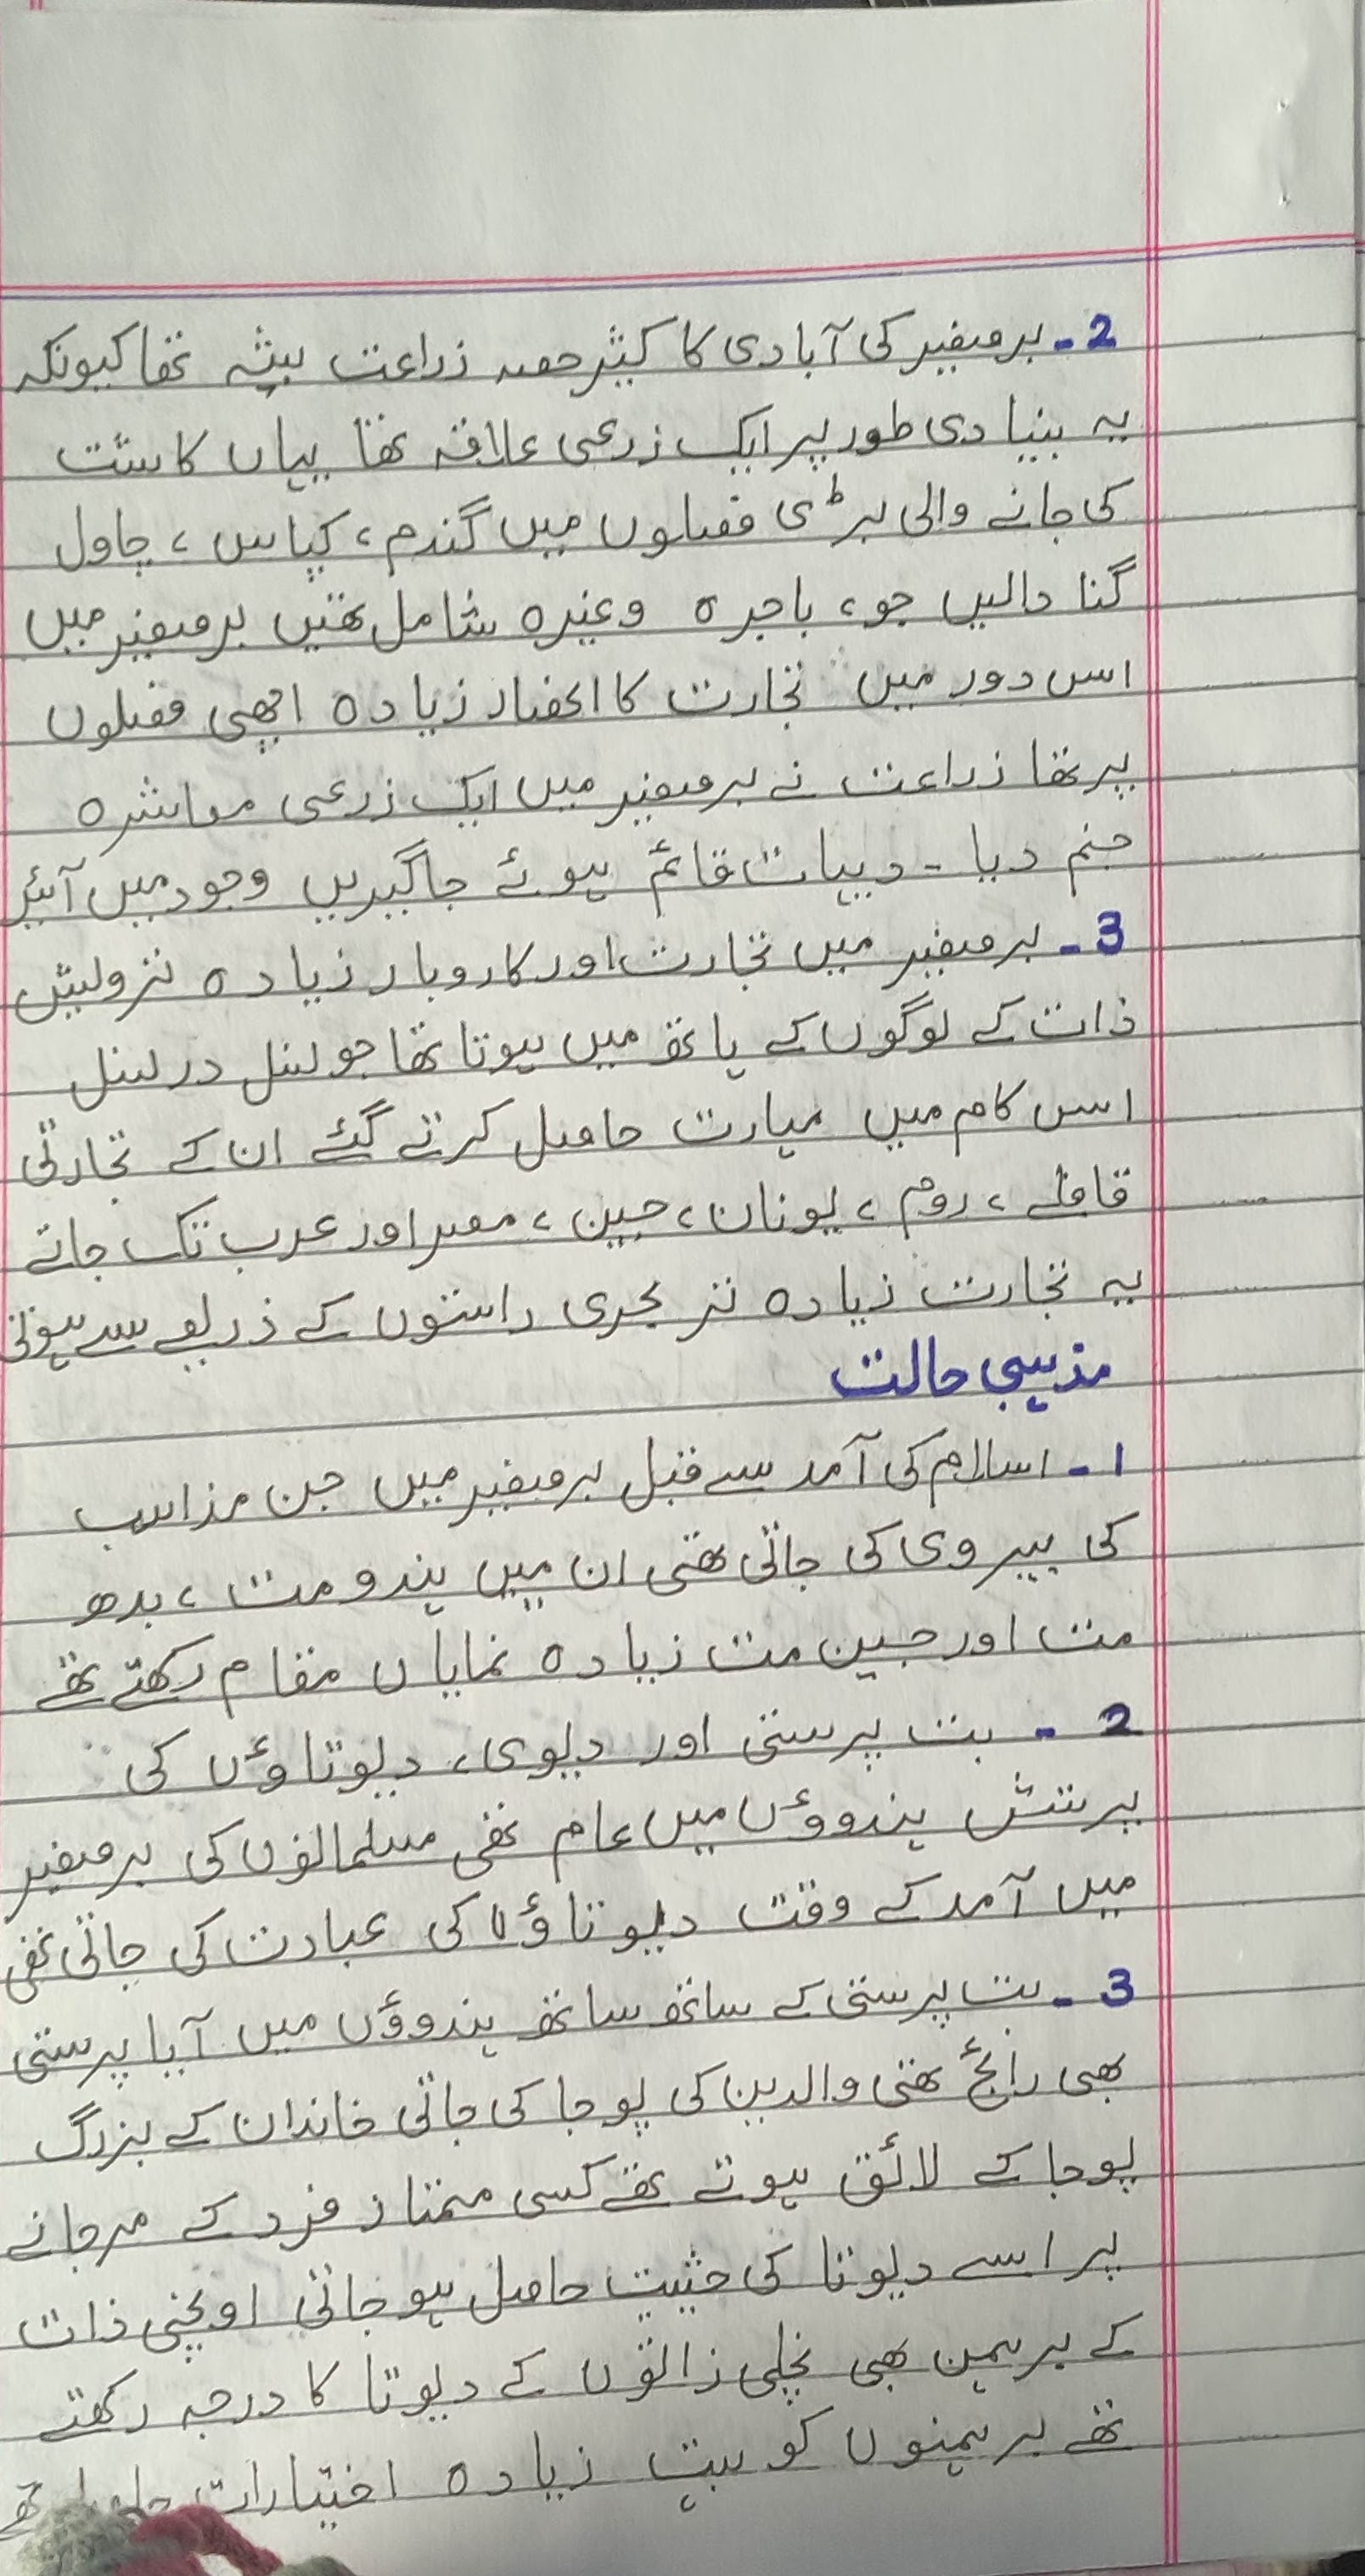 2- برصغیر کی آبادی کا کثیر حصہ زراعت پیشہ تھا کیونکہ
یہ بنیادی طور پر ایک زرعی علاقہ تھا یہاں کاشت
کی جانے والی بڑی فصلوں میں گندم، کپاس، چاول
گنا دالیں جو، باجرہ وغیرہ شامل تھیں برصغیر میں
اس دور میں تجارت کا انحصار زیادہ اچھی فصلوں
پر تھا زراعت نے برصغیر میں ایک زرعی معاشرہ
جنم دیا - دیہات قائم ہوئے جاگیریں وجود میں آئیں
3- برصغیر میں تجارت اور کاروبار زیادہ تر ویش
ذات کے لوگوں کے ہاتھ میں ہوتا تھا جو نسل در نسل
اس کام میں مہارت حاصل کرتے گئے ان کے تجارتی
قافلے، روم، یونان، چین، مصر اور عرب تک جاتے
یہ تجارت زیادہ تر بحری راستوں کے ذریعے سے ہوتی
مذہبی حالت
1- اسلام کی آمد سے قبل برصغیر میں جن مذاہب
کی پیروی کی جاتی تھی ان میں ہندومت، بدھ
مت اور جین مت زیادہ نمایاں مقام رکھتے تھے
2- بت پرستی اور دیوی، دیوتاؤں کی
پرستش ہندوؤں میں عام تھی مسلمانوں کی برصغیر
میں آمد کے وقت دیوتاؤں کی عبادت کی جاتی تھی
3- بت پرستی کے ساتھ ساتھ ہندوؤں میں آبا پرستی
بھی رائج تھی والدین کی پوجا کی جاتی خاندان کے بزرگ
پوجا کے لائق ہوتے تھے کسی ممتاز فرد کے مرجانے
پر اسے دیوتا کی حثیت حاصل ہو جاتی اونچی ذات
کے برہمن بھی نچلی ذاتوں کے دیوتا کا درجہ رکھتے
تھے برہمنوں کو بہت زیادہ اختیارات حاصل تھے